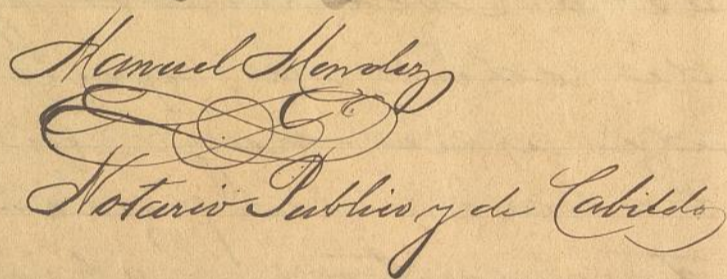 Manuel Mendez
Notario Publico y de Cabildo